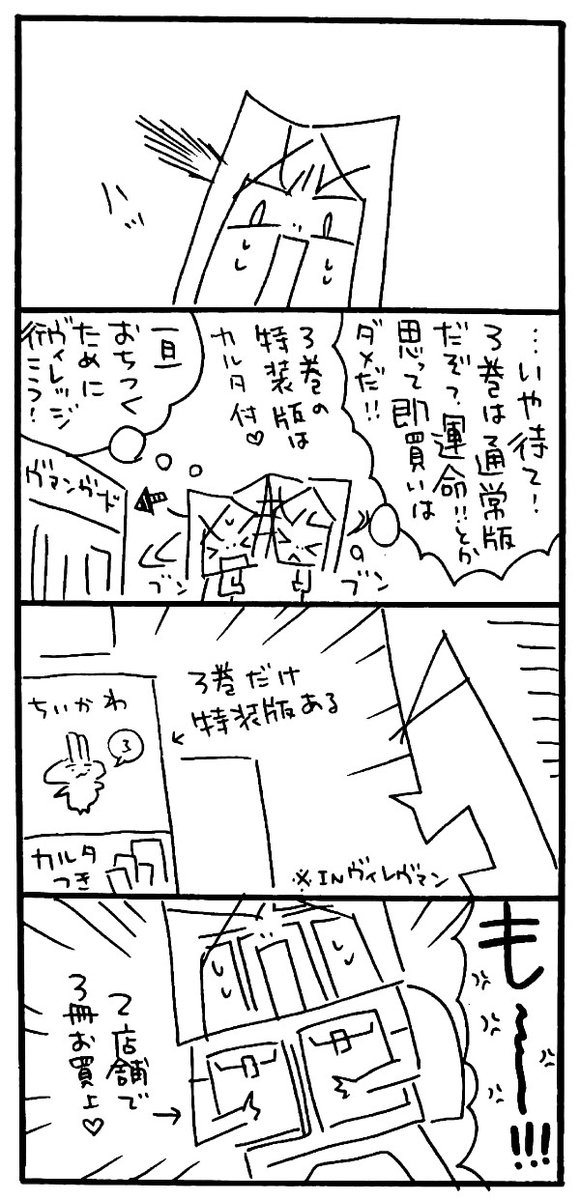 ハッ
…いや待て!
3巻は通常版
だぞ?運命!!とか
思って即買いは
ダメだ!!
3巻の
特装版は
カルタ付♡
一旦
おちつく
ために
ヴィレッジ
行こう!
ヴァンガード
ブン
ブン
3巻だけ
特装版ある
ちいかわ
3
カルタ
つき
※INヴィレヴァン
も〜〜!!!
2店舗で
3冊お買上♡